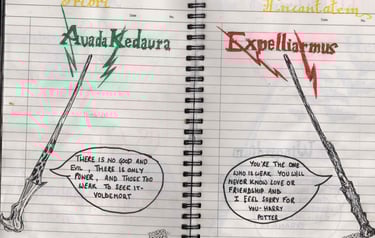 Priori
Incantatem
Avada Kedaura
THERE IS NO GOOD AND
EVIL, THERE IS ONLY
POWER, AND THOSE TOO
WEAK TO SEEK IT-
VOLDEMORT
Expelliarmus
YOU'RE THE ONE
WHO IS WEAK. YOU WILL
NEVER KNOW LOVE OR
FRIENDSHIP AND
I FEEL SORRY FOR
YOU-HARRY
POTTER